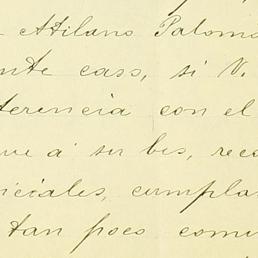 Atilano Palomo
nte caso, si V.
terencia con el
ue á su bes, reca
iciales, cumpla
tan poco comu